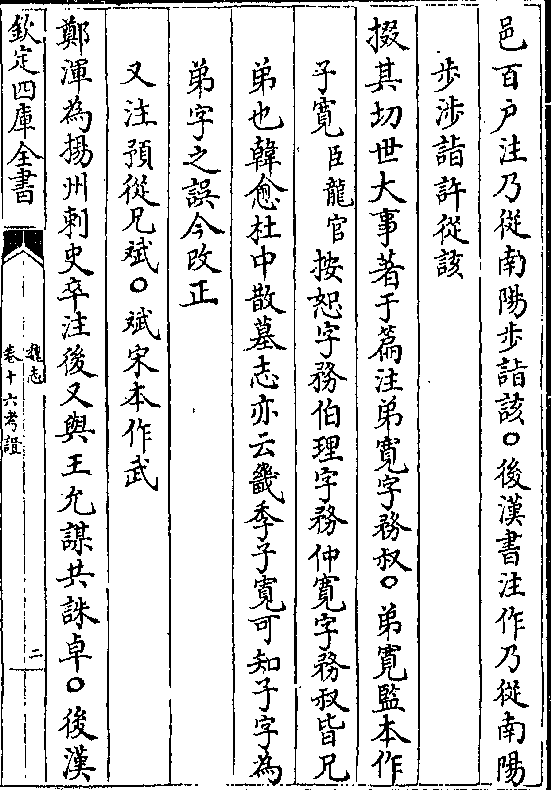 邑百户注乃從南陽步詣該○後漢書注作乃從南陽
步涉詣許從該
掇其切世大事著于篇注弟寛字務叔○弟寛監本作
子寛臣龍官按恕字務伯理字務仲寛字務叔皆兄
弟也韓愈杜中散墓志亦云畿季子寛可知子字為
弟字之誤今改正
又注預從兄斌○斌宋本作武
鄭渾為揚州刺史卒注後又與王允謀共誅卓○後漢
欽定四庫全書
魏志
卷十六考證
二